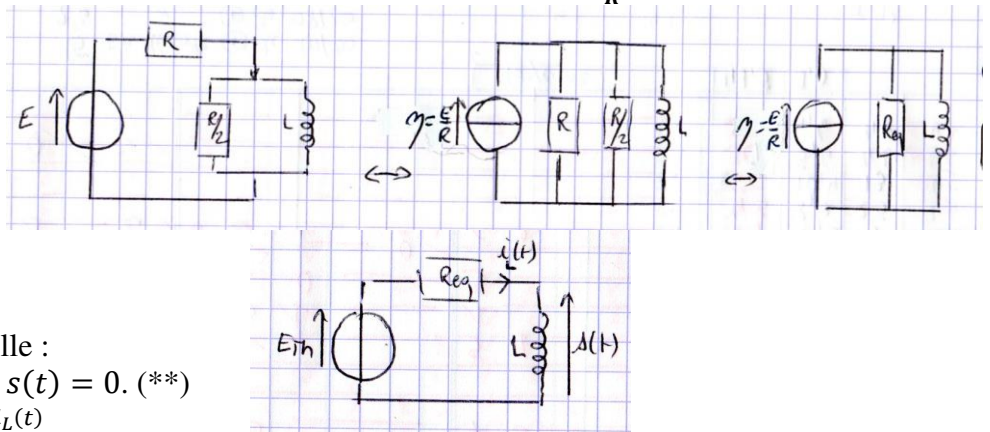 R
R
E
R/2
L
η=E/R
R
R/2
L
η=E/R
Req
L
i_L(t)
Req
ETh
L
s(t)
lle :
s(t) = 0. (**)
L(t)